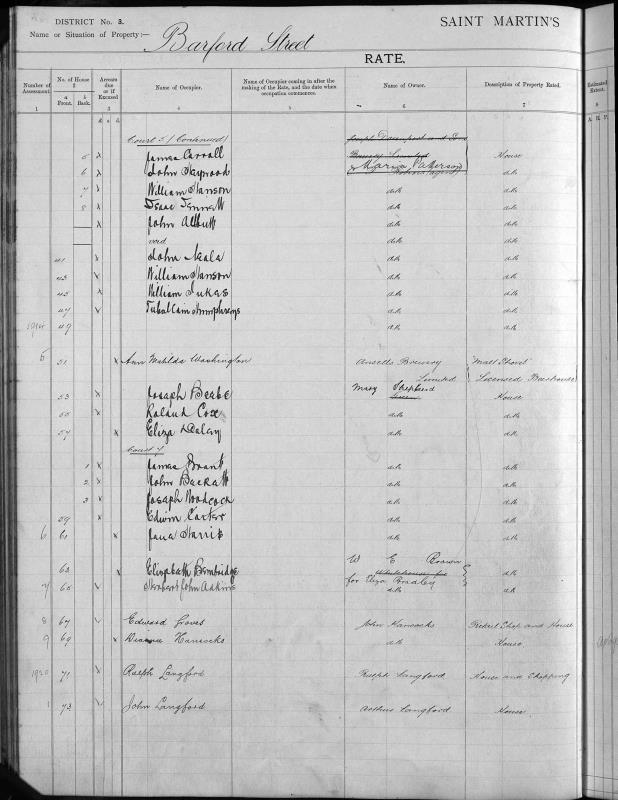 DISTRICT No. 3.
SAINT MARTIN'S
Name or Situation of Property:— Barford Street
RATE.
Number of Assessment. No. of House Accrues due as if Excused Name of Occupier. Name of Occupier coming in after the making of the Rate, and the date when occupation commences. Name of Owner. Description of Property Rated. Estimated Extent.
a Front. b Back.
1 2 3 4 5 6 7 8
A. R. P.
Court 5 (Continued) Joseph Davenport and Sons
5 x James Carroll House
6 x John Haywood Maria Paterson do
7 x William Hanson do do
8 x Isaac Jennett do do
x John Abbutt do do
void do do
41 x John Neala do do
43 William Hanson do do
45 x William Lukas do do
47 Tubal Cain Humphreys do do
1914 49 do do
5 51 x Ann Matilda Washington Ansells Brewery "Malt Shovel"
Limited Licensed Beerhouse
53 x Joseph Beebe Mary Shepherd House
55 x Roland Cox do do
57 x Eliza Daley do do
Court 7
1 x James Brant do do
2 x John Beckett do do
3 x Joseph Woodcock do do
59 x Edwin Carter do do
6 61 x Jane Harris do do
W E Brown
63 x Elizabeth Bembridge do
for Eliza Bradley
7 65 Herbert John Adkins do do
8 67 Edward Groves John Hancocks Retail Shop and House
9 69 x Dianna Hancocks do House
1920 71 Ralph Langford Ralph Langford House and Shopping
1 73 John Langford Arthur Langford House